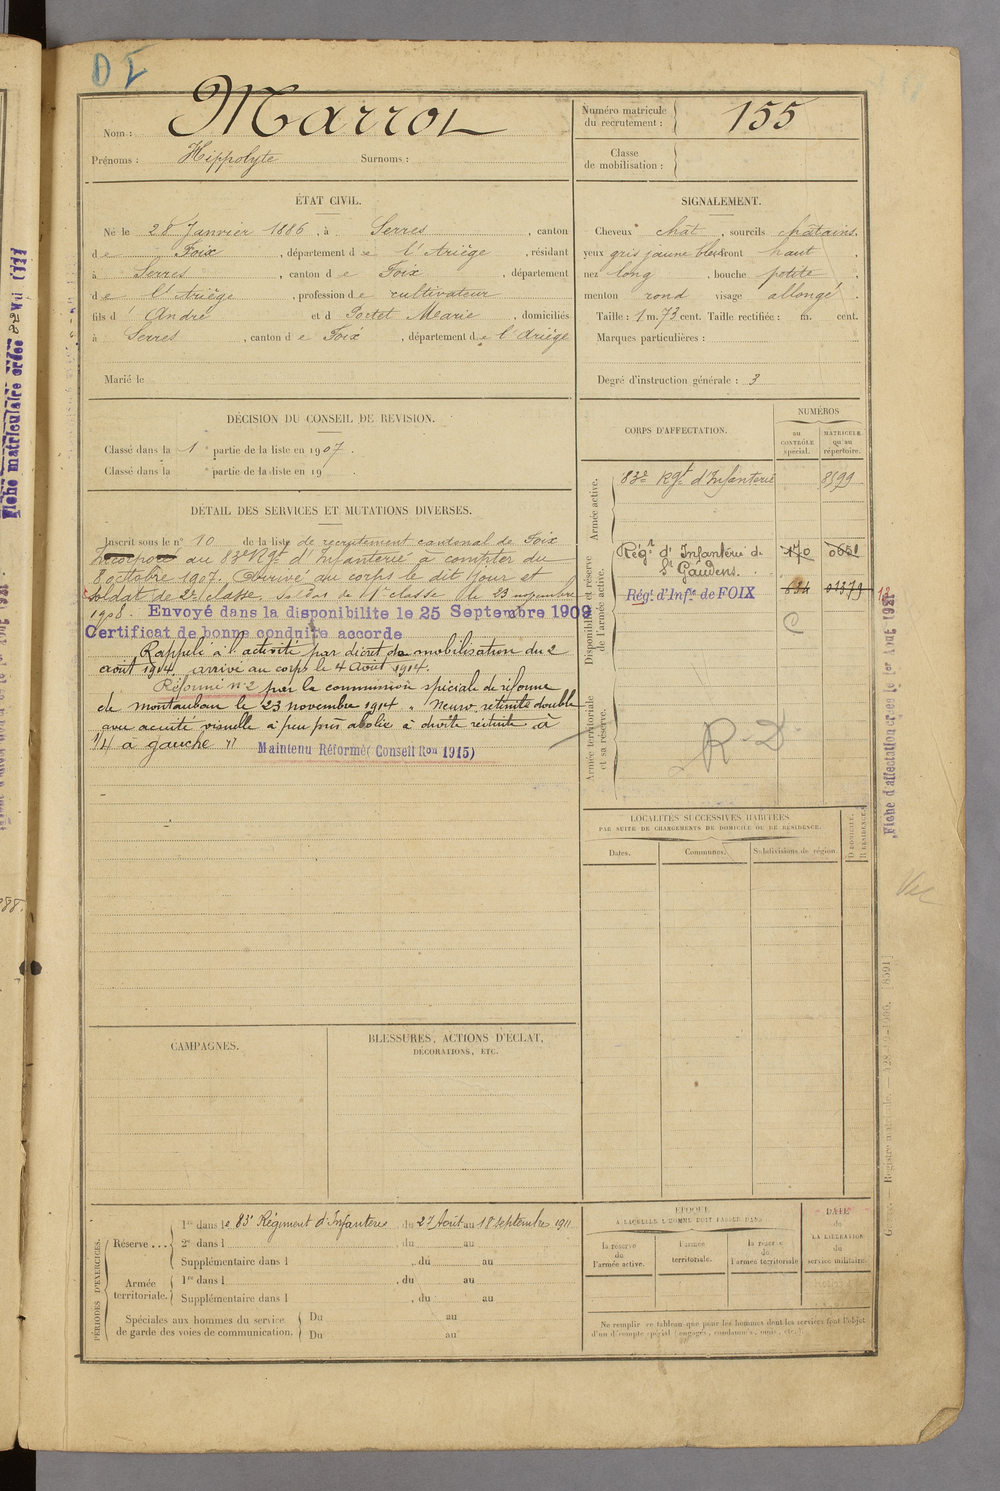 D
Nom : Marrot
Numéro matricule du recrutement : 155
Prénoms : Hippolyte Surnoms :
Classe de mobilisation :
ÉTAT CIVIL.
Né le 28 Janvier 1886, à Serres, canton
de Foix, département de l'Ariège, résidant
à Serres, canton de Foix, département
de l'Ariège, profession de cultivateur
fils d' André et d Portet Marie, domiciliés
à Serres, canton de Foix, département de l'Ariège
Marié le
SIGNALEMENT.
Cheveux chat, sourcils châtains,
yeux gris jaune bleu front haut,
nez long, bouche petite,
menton rond visage allongé.
Taille : 1 m. 73 cent. Taille rectifiée : m. cent.
Marques particulières :
Degré d'instruction générale : 3
DÉCISION DU CONSEIL DE REVISION.
Classé dans la 1e partie de la liste en 1907.
Classé dans la e partie de la liste en 19
DÉTAIL DES SERVICES ET MUTATIONS DIVERSES.
Inscrit sous le n° 10 de la liste de recrutement cantonal de Foix
Incorporé au 83e Rgt d'Infanterie à compter du
8 octobre 1907. Arrivé au corps le dit jour et
soldat de 2e classe. Soldat de 1e classe le 23 novembre
1908. Envoyé dans la disponibilite le 25 Septembre 1909
Certificat de bonne conduite accorde
Rappelé à l'activité par décret de mobilisation du 2
août 1914, arrivé au corps le 4 Août 1914.
Réformé n° 2 par la commission spéciale de réforme
de montauban le 23 novembre 1914 " Neuro retinite double
avec acuité visuelle à peu près abolie à droite réduite à
1/4 à gauche "
Maintenu Réformé (Conseil Ron 1915)
CORPS D'AFFECTATION.
NUMÉROS
au CONTRÔLE spécial.
MATRICULE ou au répertoire.
Armée active.
83e Rgt d'Infanterie 8599
Disponibilité et réserve de l'armée active.
Régt d'Infanterie de St Gaudens. 170
Régt d'Infie de FOIX 01379
C
Armée territoriale et sa réserve.
R. D.
LOCALITÉS SUCCESSIVES HABITÉES
PAR SUITE DE CHANGEMENTS DE DOMICILE OU DE RÉSIDENCE.
Dates. Communes. Subdivisions de région. D DOMICILE. R RÉSIDENCE.
CAMPAGNES.
BLESSURES, ACTIONS D'ÉCLAT,
DÉCORATIONS, ETC.
PÉRIODES D'EXERCICES.
Réserve ... 1re dans le 83e Régiment d'Infanterie du 27 Août au 18 septembre 1911
2e dans l du au
Supplémentaire dans l du au
Armée territoriale. 1re dans l, du au
Supplémentaire dans l, du au
Spéciales aux hommes du service de garde des voies de communication.
Du au
Du au
ÉPOQUE
À LAQUELLE L'HOMME DOIT PASSER DANS
la réserve de l'armée active.
l'armée territoriale.
la réserve de l'armée territoriale
DATE de LA LIBÉRATION du service militaire.
Ne remplir ce tableau que pour les hommes dont les services font l'objet
d'un décompte spécial (engagés, condamnés, omis, etc.)
Fiche matriculaire créée
Fiche d'affectation créée le 1er Août 1931